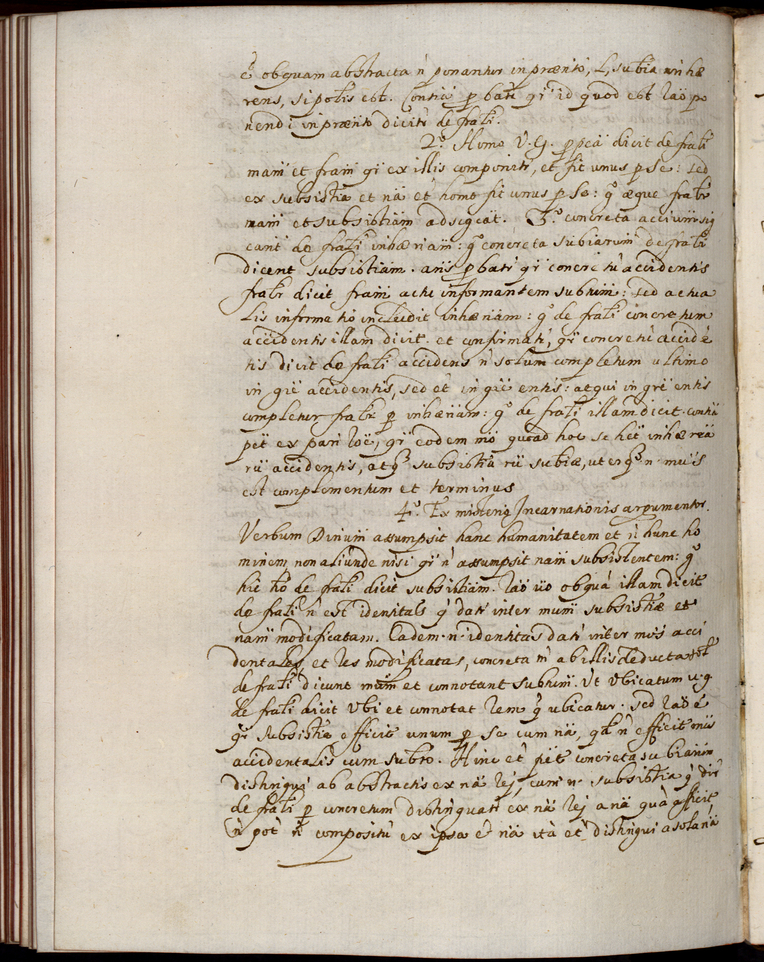 ē obquam abstracta ñ ponantur in præn̄to, l, subīa nn̄ hæ
rens, si potis est. Contiā pbatr̄ qr̄ id quod est raō po
nendi in præn̄to dicitr̄ de frali.
2.º Homo V.G. ppeā dicit de frali
mam et fram qr̄ ex illis componitr̄, et fit unus p se: sed
ex subsistīa et nā et homo fit unus p se: gº æque fralr̄
nam et subsistīam adseqcāt. 3.º concreta accīum sig
cant de frali inhæn̄am: gº concreta subīarum de frali
dicent subsistīam. ans pbatr̄ qr̄ concretū accidentis
fralr̄ dicit fram actu informantem subtum: sed actua
lis informatio includit inhænam: gº de frali concretum
accidentis illam dicit. et confirmatr̄, qr̄ concretū accidē
tis dicit de frali accidens ñ solum completum ultimo
in grē accidentis, sed et in grē entis: atqui in grē entis
completur fralr̄ p inhænam: gº de frali illam dicit. contiā
pēt ex pari raōe, qr̄ eodem mō quoad hoc se hēt inhæren̄a
rū accidentis, atqº subsistīa rū subīæ, uterqº n. mus
est complementum et terminus
4.º Ex misterio Incarnationis argumentor.
Verbum Divinum assumpsit hanc humanitatem et ñ hunc ho
minem, non aliunde nisi qr̄ ñ assumpsit nam subsistentem: gº
hic hō de frali dicit subsistīam. raō uō obquā illam dicit
de frali ñ est identitas q̄ datr̄ inter mum subsistīæ et
nam modificatam. Eadem n. identitas datr̄ inter mōs acci
dentales, et res modificatas, concreta tn̄ ab illis deducta sol
de frali dicunt mum et connotant subtum. Ut Ubicatum v.g.
de frali dicit Ubi et connotat rem q̄ ubicatur. sed raō ē
qr̄ subsistīæ efficit unum p se cum nā, qd̄ ñ efficit mūs
accidentalis cum subto. Hinc et pēt concreta subīarum
distingui ab abstractis ex nā rej, cum n. subsistīa q̄ dr̄
de frali p concretum distinguatr̄ ex nā rej a nā quā afficit,
ñ pot ñ compositū ex ipsa et nā ita et distingui a sola nā